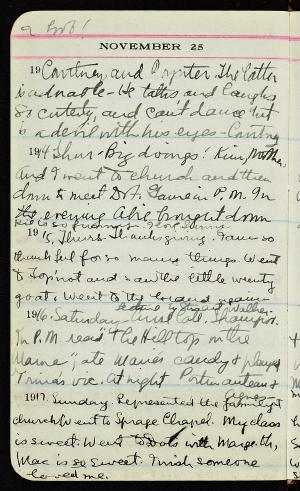 a Job!
NOVEMBER 25
19 Courtney, and Poynter. The latter
is adorable - He talks and laughs
so cutely, and can't dance but
is a devil with his eyes - Courtney
1914 Thur - Big doings! Kim, Mother,
and I went to church and then
down to meet Dr. A. in P.M. In
the evening Abie brought down
1915, Thurs. Thanksgiving. I am so
thankful for so many things. Went
to and saw the little weenty
goats. Went to the again
1916. Saturday.
In P.M. read "The Hilltop on the
Marne", ate Mama's candy & played
Trina's vic. At night
1917. Sunday. Represented the family at
church. Went to Sprage Chapel. My class
is sweet. Went to with Margeth,
Mac is so sweet. I wish someone
loved me.